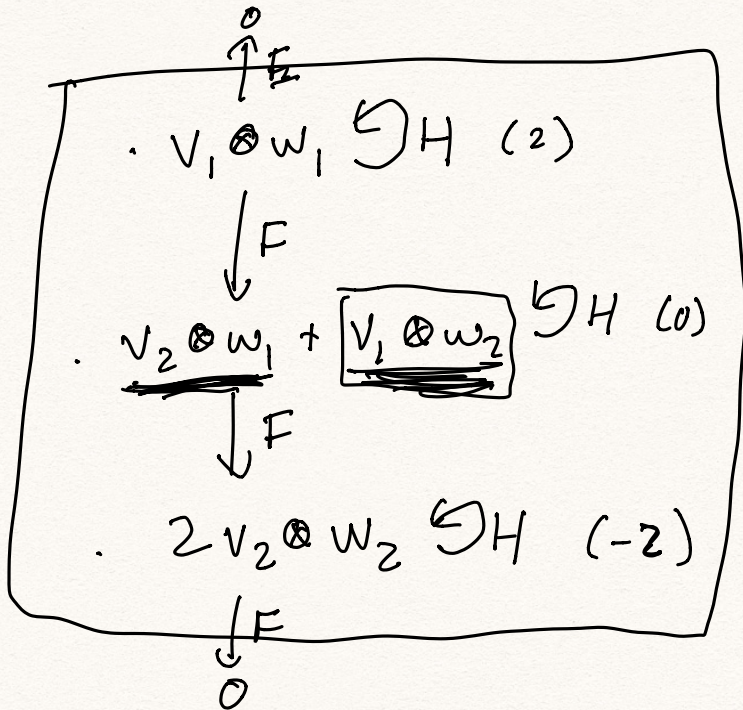 0
↑ E
· V₁ ⊗ W₁ ↺ H (2)
↓ F
· V₂ ⊗ W₁ + V₁ ⊗ W₂ ↺ H (0)
↓ F
· 2 V₂ ⊗ W₂ ↺ H (-2)
↓ F
0